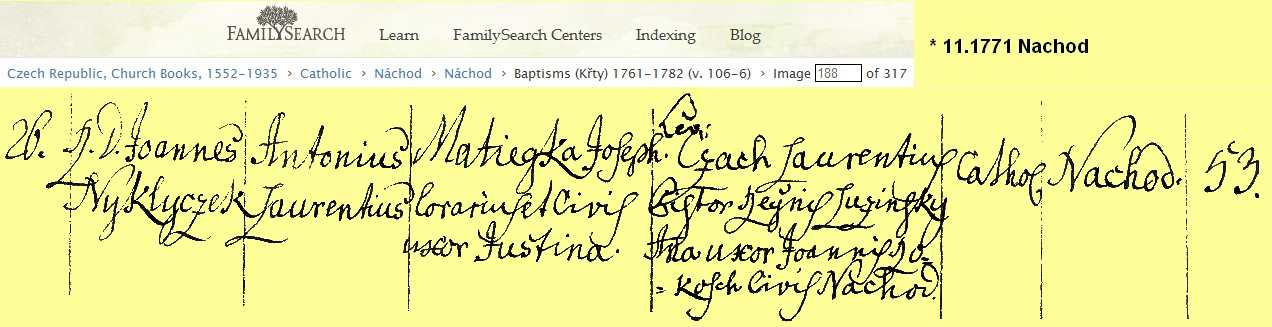 FAMILYSEARCH Learn FamilySearch Centers Indexing Blog
* 11.1771 Nachod
Czech Republic, Church Books, 1552-1935 > Catholic > Náchod > Náchod > Baptisms (Křty) 1761-1782 (v. 106-6) > Image 188 of 317
26. D. Joannes Antonius Matiegka Joseph. Czach Laurentius Cathol Nachod. 53.
Nyklyczek Laurentius Corarius et Civis Pistor
uxor Justina. uxor Joannis
Civis Nachod